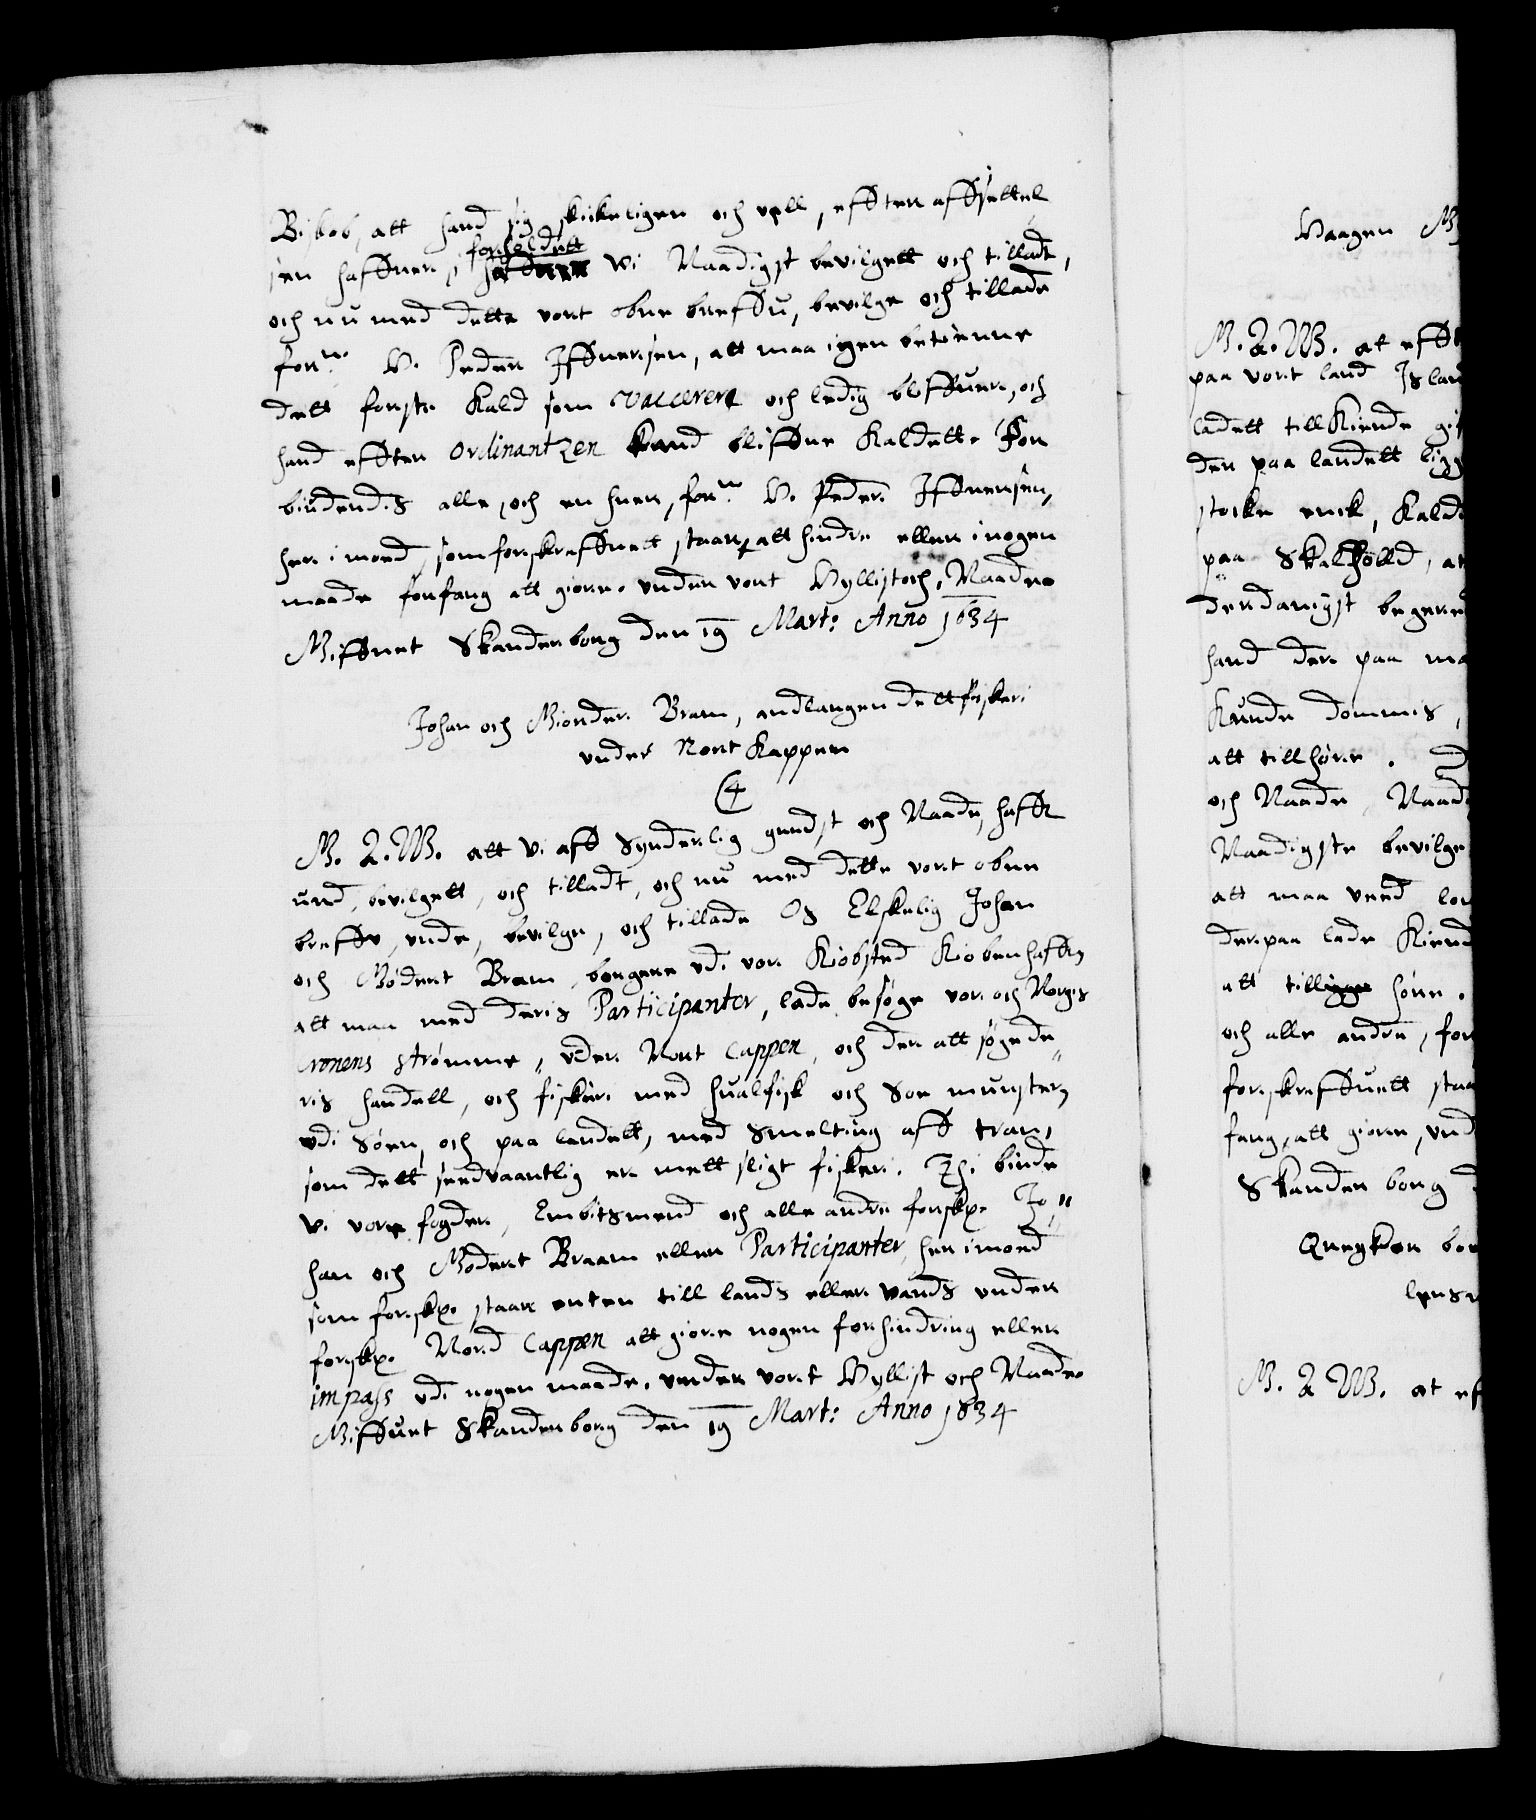 Bisbob, att hand sig skickeligen och vell, effter affsettel
sen haffuer, forholdett Wi Naadigst bevilgett och tilladt,
och nu med dette vort obne breffu, bevilge och tillade
forne H. Peder Iffuersen, att maa igen betienne
dett første Kald som vaccerer och ledig bliffuer, och
hand effter Ordinantzen kand bliffue Kaldett. For
biudendis alle, och en huer, forne H. Peder Iffuersen,
her imod, som forskreffuett staar, att hindre eller i nogen
maade forfang att giøre. under vort Hyllist och Naade
Giffuet Skanderborg den 19 Mart: Anno 1634
Johan och Giodert Bram, andlangendett fiskeri
under Nort Kappen
C4
G. A. W. att Vi aff Synderlig gundst och Naade, haffr
und, bevilgett, och tilladt, och nu med dette vort obne
breffu, unde, bevilge, och tillade Os Elskelig Johan
och Gødert Bram, borgere udi vor Kiøbsted Kiøbenhaffn
att maa med deris Participanter, lade besøge vor och Norges
Cronens strømme, under Nort Cappen, och der att søge de„
ris handell, och fiskeri med hualfisk och Soe munster,
udi Søen, och paa landett, med Smelting aff tran,
som dett sedvaantlig er mett sligt fiskeri. Thi biude
vi vore fogder, Embitsmend och alle andre forskr. Jo„
han och Gødert Braam eller Participanter, her imod
som forskr. staar enten till lands eller vands under
forskr. Nord Cappen att giøre nogen forhindring eller
impass udi nogen maade. under vort Hyllist och Naade
Giffuet Skanderborg den 19 Mart: Anno 1634
Haagen
G. A. W. at efft
paa vort land Islan
ladett till Kiende gi
der paa landett ligg
støcke enck, Kald
paa Skalholld, at
derdanigst begere
hand der paa ma
Kunde dommis,
att tillhøre.
och Naade, Naad
Naadigste bevilge
att maa
der paa lade Kiend
att tilligge høre.
och alle andre, for
forskreffuett staa
fang, att giøre, und
Skanderborg
bor
lens
G. A W. at ef